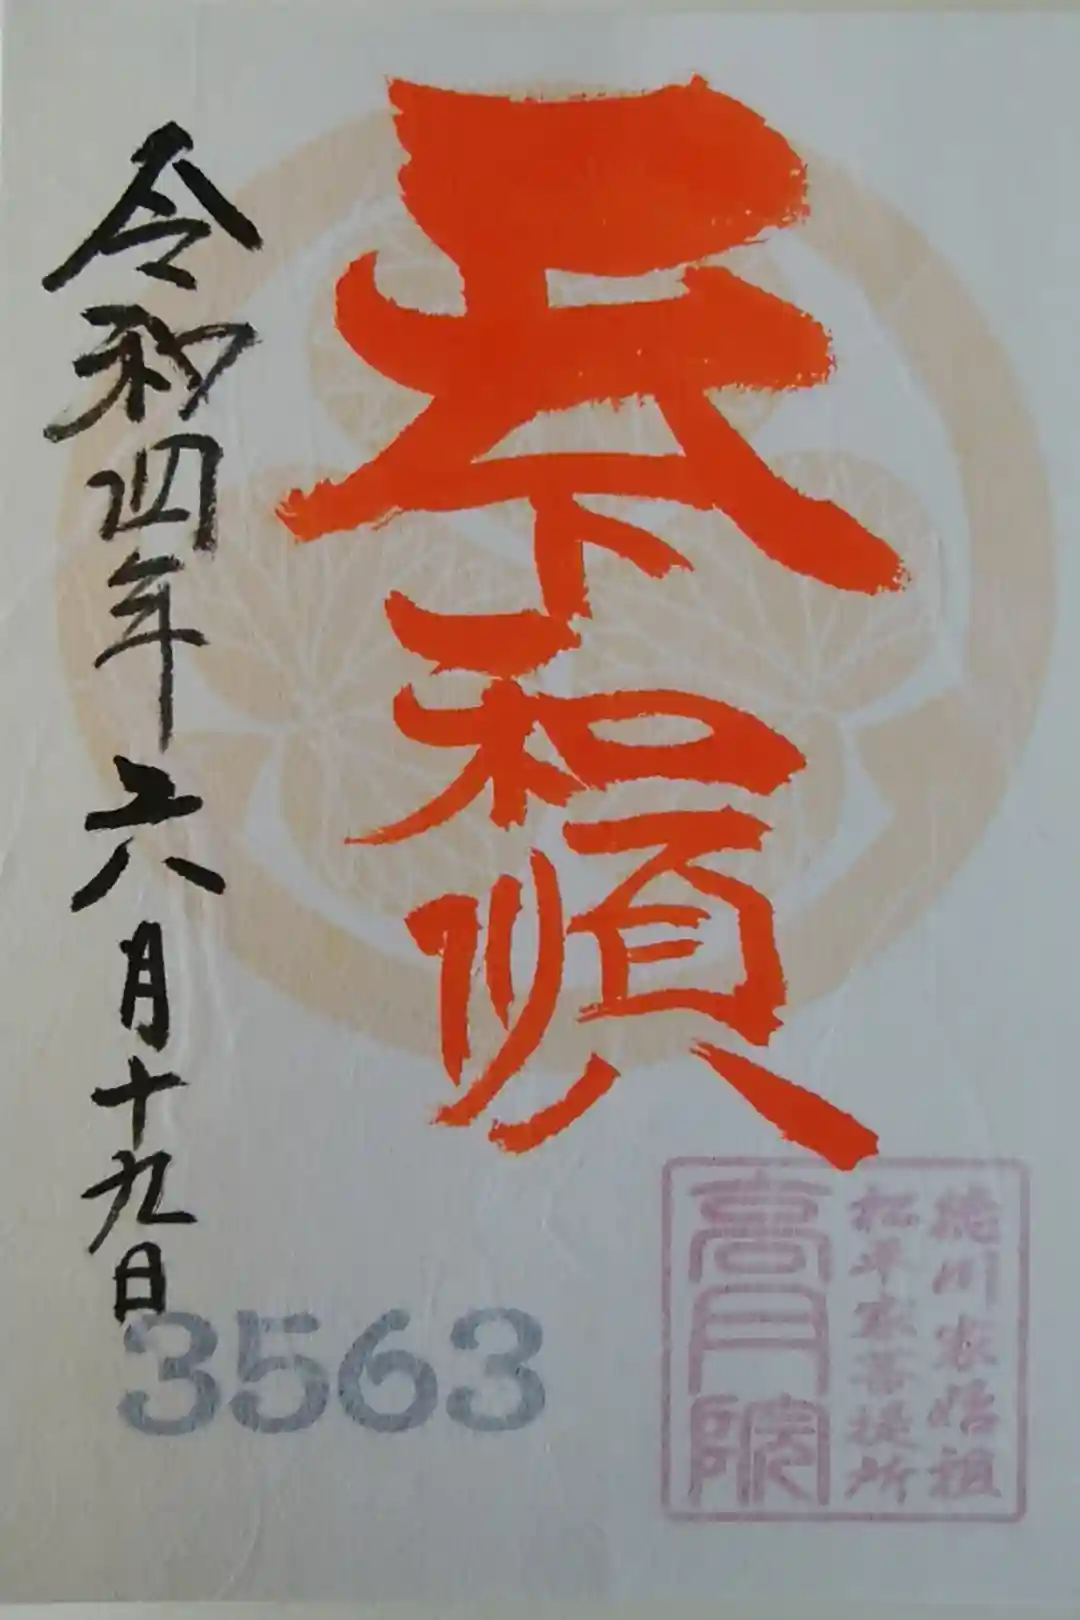 天下和順
令和四年六月十九日
3563
徳川家始祖
松平家菩提所
高月院